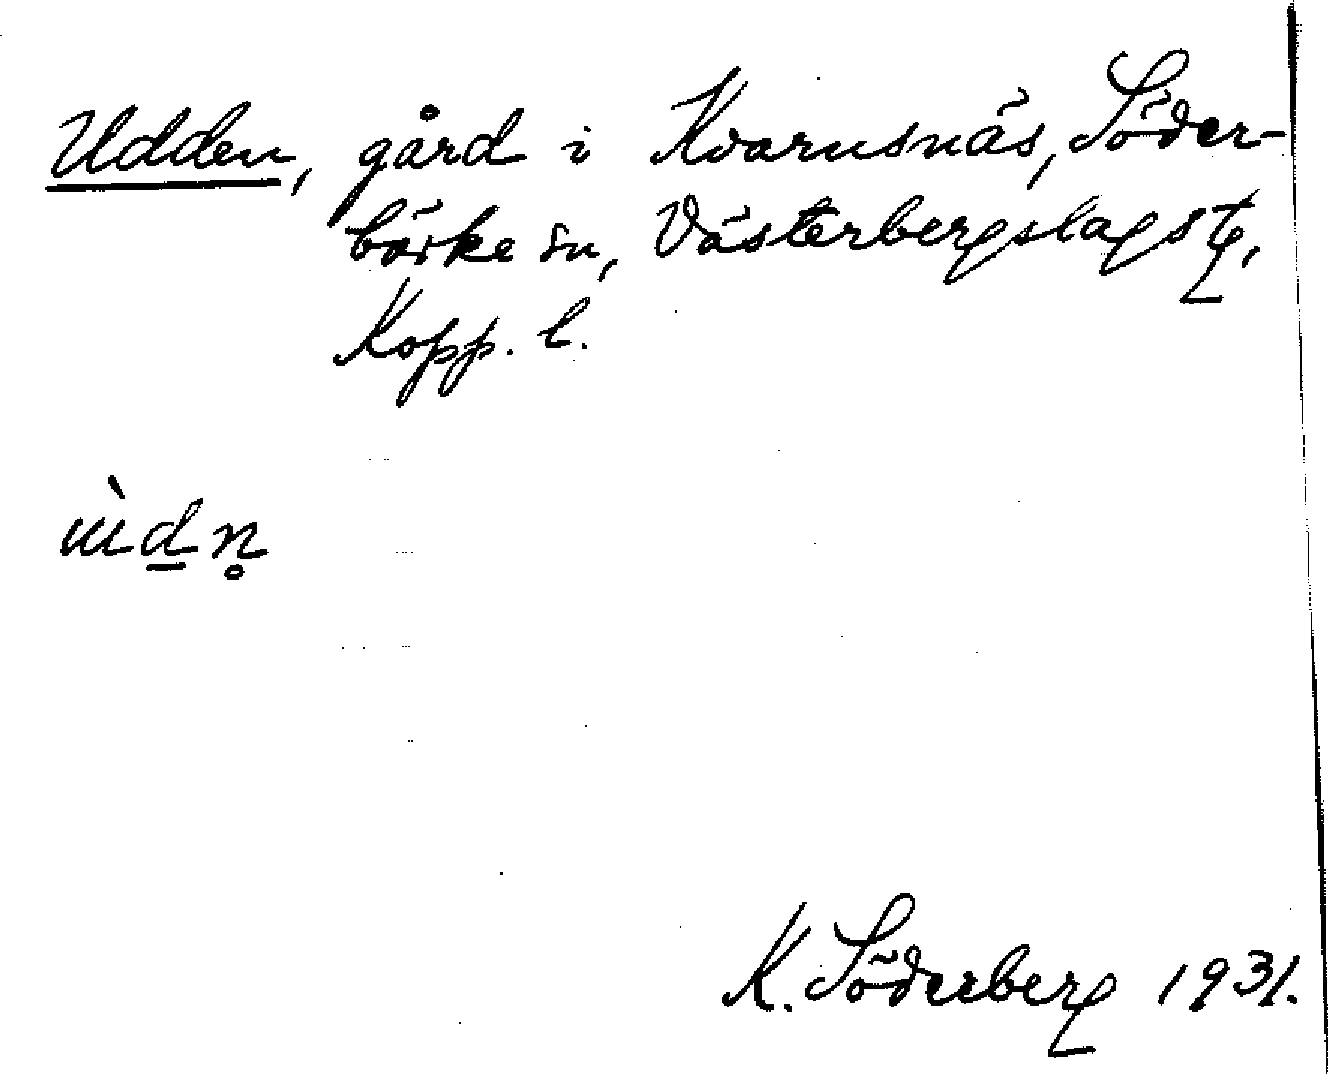 Udden, gård i Kvarnsnäs, Söder-
bärke sn, Västerbergslags tg,
Kopp. l.
ɯ̀d̲n̥
K. Söderberg 1931.